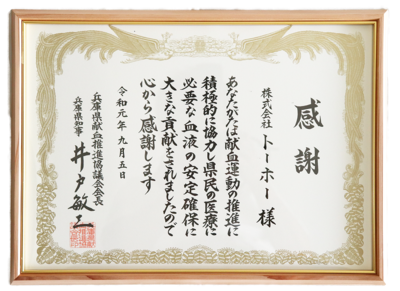 感謝
株式会社トーホー 様
あなたがたは献血運動の推進に
積極的に協力し県民の医療に
必要な血液の安定確保に
大きな貢献をされましたので
心から感謝します
令和元年九月五日
兵庫県献血推進協議会会長
兵庫県知事
井戸敏三